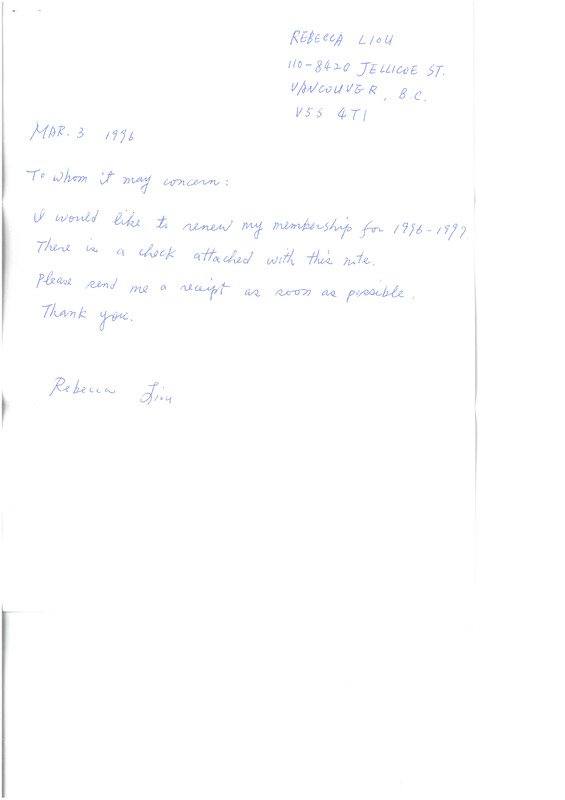 REBECCA LIOU
110-8420 JELLICOE ST.
VANCOUVER, B.C.
V5S 4T1
MAR. 3 1996
To whom it may concern:
I would like to renew my membership for 1996-1997
There is a check attached with this note.
Please send me a receipt as soon as possible.
Thank you.
Rebecca Liou